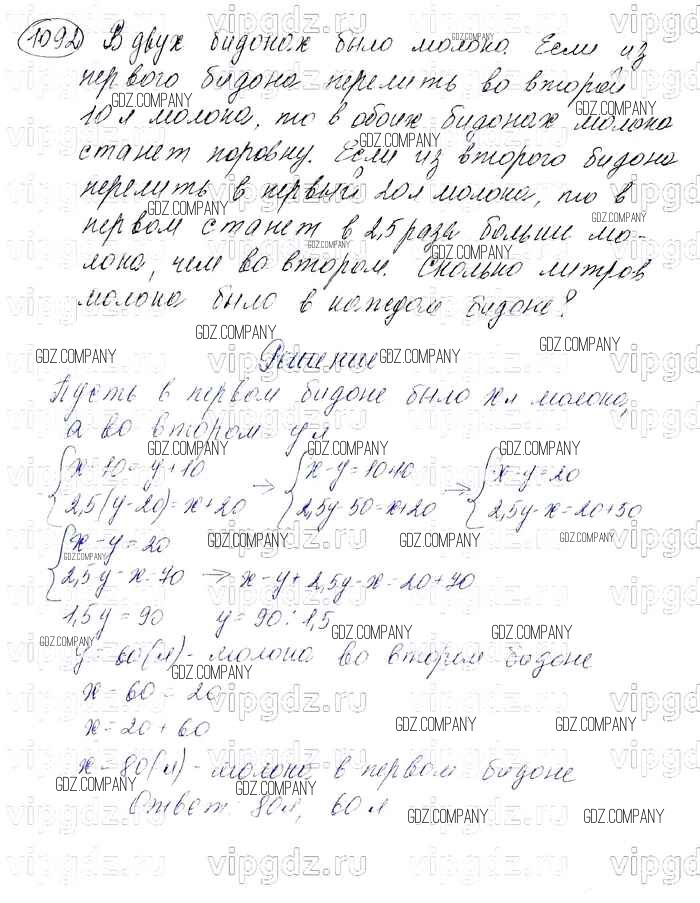 1092) В двух бидонах было молоко. Если из
первого бидона перелить во второй
10 л молока, то в обоих бидонах молока
станет поровну. Если из второго бидона
перелить в первый 20 л молока, то в
первом станет в 2,5 раза больше мо-
лока, чем во втором. Сколько литров
молока было в каждом бидоне?
Решение
Пусть в первом бидоне было x л молока,
а во втором - y л
{ x - 10 = y + 10 → { x - y = 10 + 10 → { x - y = 20
{ 2,5(y - 20) = x + 20 { 2,5y - 50 = x + 20 { 2,5y - x = 20 + 50
{ x - y = 20
{ 2,5y - x = 70 → x - y + 2,5y - x = 20 + 70
1,5y = 90 y = 90 : 1,5
y = 60(л) - молока во втором бидоне
x - 60 = 20
x = 20 + 60
x = 80(л) - молока в первом бидоне
Ответ: 80 л, 60 л
GDZ.COMPANY
vipgdz.ru